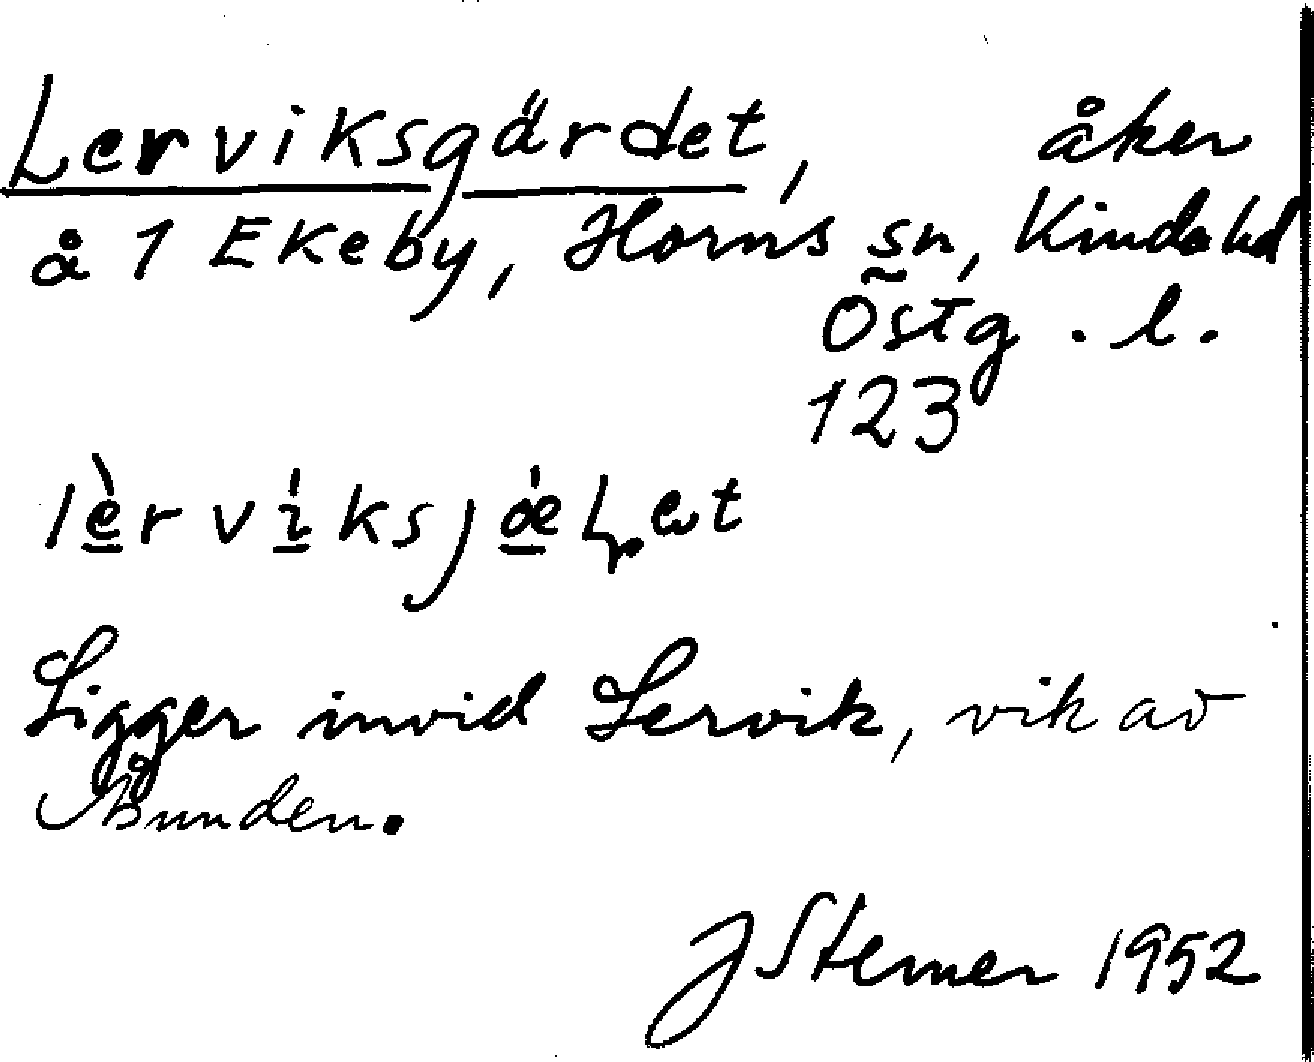 Lerviksgärdet, åker
å 1 Ekeby, Horns sn, Kinda hd
Östg. l.
123
Ligger invid Lervik, vik av
Åsunden.
J Sterner 1952